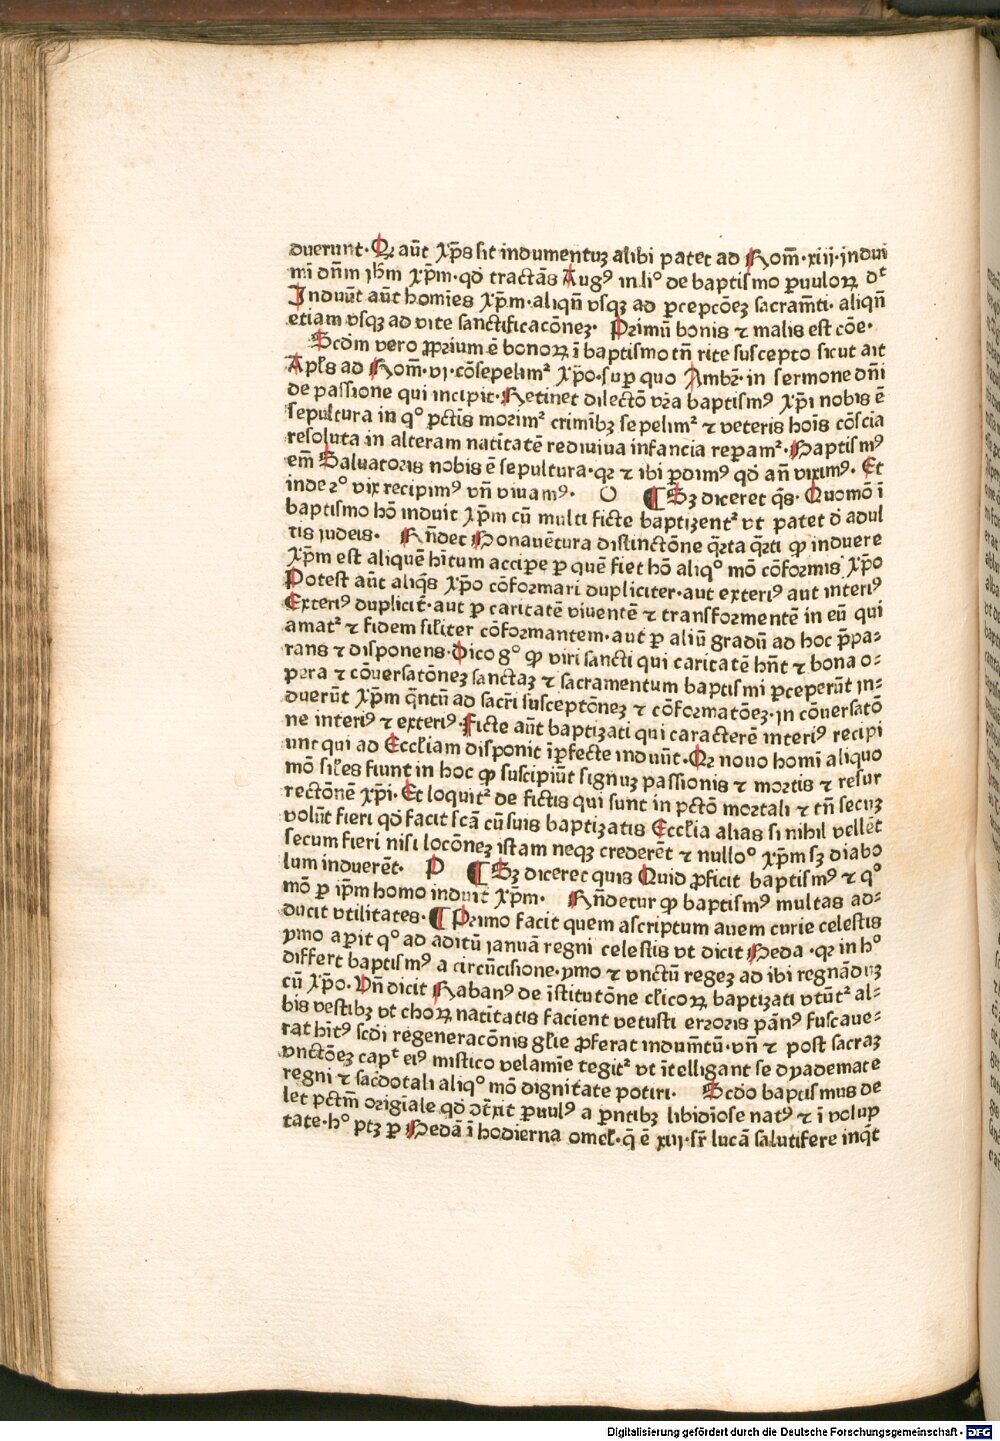 duerunt. Qꝛ aūt xp̄s sit indumentuꝫ alibi patet ad Rom̄. xiij. indui
mī dn̄m ihm̄ xp̄m. qd̛ tractās Augꝰ in li° de baptismo ꝑuuloꝝ dt
Induūt aūt homīes xp̄m. aliqn̄ vsqꝫ ad ꝑcepcōeꝫ sacram̄ti. aliqn̄
etiam vsqꝫ ad vite sanctificacōneꝫ. Primū bonis ⁊ malis est cōe.
Scdm vero ꝓprium ē bonoꝝ ī baptismo tn̄ rite suscepto sicut ait
Apl̄s ad Rom̄. vi. cōsepelim² xp̄o. suꝑ quo Ambꝛ̄. in sermone dn̄i
de passione qui incipit. Retinet dilectō vr̄a baptismꝰ xp̄i nobis ē
sepultura in q° pctīs morim² crimībꝫ sepelim² ⁊ veteris hoīs cōscia
resoluta in alteram natītatē rediuiua infancia reꝑam². Baptismꝰ
em̄ Saluatoris nobis ē sepultura. qꝛ ⁊ ibi ꝑdimꝰ qd̛ an̄ viximꝰ. Et
inde ꝛ° vix recipimꝰ vn̄ viuamꝰ. O ¶ Sꝫ diceret q̄s. Quomō ī
baptismo hō induit xp̄m cū multi ficte baptizent² vt patet d̄ adul
tis iudeis. Rn̄det Bonauētura distinctōne q̄rta q̄rti ꝙ induere
xp̄m est aliquē hītum accipe ꝑ quē fiet hō aliq° mō cōformis xp̄o
Potest aūt aliq̄s xp̄o cōformari dupliciter. aut exteriꝰ aut interiꝰ
Exteriꝰ duplicit̄. aut ꝑ caritatē viuentē ⁊ transformentē in eū qui
amat² ⁊ fidem sil̄iter cōformantem. aut ꝑ aliū gradū ad hoc p̄pa⸗
rans ⁊ disponens. Dico g° ꝙ viri sancti qui caritatē hn̄t ⁊ bona o⸗
pera ⁊ cōuersatōneꝫ sanctaꝫ ⁊ sacramentum baptismi ꝑceperūt in⸗
duerūt xp̄m q̄ntū ad sacr̄i susceptōneꝫ ⁊ cōformatōeꝫ. in cōuersatō
ne interiꝰ ⁊ exteriꝰ. Ficte aūt baptizati qui caracterē interiꝰ recipi
unt qui ad Eccl̄iam disponit īꝑfecte induūt. Qꝛ nouo homī aliquo
mō sil̄es fiunt in hoc ꝙ suscipiūt signuꝫ passionis ⁊ mortis ⁊ resur
rectōnē xp̄i. Et loquit² de fictis qui sunt in pctō mortali ⁊ tn̄ secuꝫ
volūt fieri qd̛ facit scā cū suis baptizatis Eccl̄ia alias si nihil vellēt
secum fieri nisi locōneꝫ istam neqꝫ crederēt ⁊ nullo° xp̄m sꝫ diabo
lum induerēt. P ¶ Sꝫ diceret quis Quid ꝓficit baptismꝰ ⁊ q°
mō ꝑ ip̄m homo induit xp̄m. Rn̄detur ꝙ baptismꝰ multas ad⸗
ducit vtilitates. ¶ Primo facit quem ascriptum auem curie celestis
ymo aꝑit q° ad aditū ianuā regni celestis vt dicit Beda. qꝛ in h°
differt baptismꝰ a circūcisione. ymo ⁊ vnctū regeꝫ ad ibi regnādūꝫ
cū xp̄o. Vn̄ dicit Rabanꝰ de īstitutōne cl̄icoꝝ baptizati vtūt² al⸗
bis vestibꝫ vt choꝝ natītatis facient vetusti erroris pānꝰ fuscaue⸗
rat hītꝰ scdi regeneracōnis gl̄ie ꝓferat indum̄tū. vn̄ ⁊ post sacraꝫ
vnctōeꝫ capt̄ eiꝰ mistico velamīe tegit² vt ītelligant se dyademate
regni ⁊ sac̄dotali aliq° mō dignitate potiri. Scdo baptismus de
let pctm̄ origīale qd̛ ꝯt̄xit ꝑuulꝰ a ꝑntibꝫ libidīose natꝰ ⁊ ī volup
tate. h° ptꝫ ꝑ Bedā ī hodierna omel̄. q̄ ē xiij. sr̄ lucā salutifere inq̄t
Digitalisierung gefördert durch die Deutsche Forschungsgemeinschaft - DFG